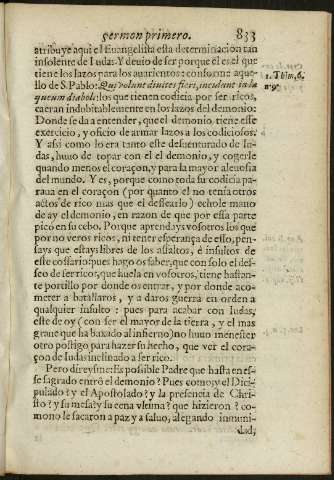 sermon primero. 833
atribuye aqui el Euangelista esta determinacion tan
insolente de Iudas. Y deuio de ser porque el es el que
tiene los lazos para los auarientos: conforme aque-
llo de S. Pablo: Qui volunt diuites fieri, incidunt in la-
queum diaboli: los que tienen codicia por ser ricos,
caeran indubitablemente en los lazos del demonio:
Donde se da a entender, que el demonio tiene este
exercicio, y oficio de armar lazos a los codiciosos.
Y assi como lo era tanto este desuenturado de Iu-
das, huuo de topar con el el demonio, y cogerle
quando menos el coraçon, y para la mayor aleuosia
del mundo. Y es, porque como toda su codicia pa-
raua en el coraçon (por quanto el no tenia otros
actos de rico mas que el dessearlo) echole mano
de ay el demonio, en razon de que por essa parte
pico en su cebo. Porque aprendays vosotros los que
por no veros ricos, ni tener esperança de esso, pen-
says que estays libres de los assaltos, é insultos de
este cossario: pues hago os saber, que con solo el des-
seo de ser ricos, que huela en vosotros, tiene bastan-
te portillo por donde os entrar, y por donde aco-
meter a batallaros, y a daros guerra en orden a
qualquier insulto: pues para acabar con Iudas,
este de oy (con ser el mayor de la tierra, y el mas
graue que ha baxado al infierno) no huuo menester
otro postigo para hazer su hecho, que ver el cora-
çon de Iudas inclinado a ser rico.
Pero direysme: Es possible Padre que hasta en es-
se sagrado entró el demonio? Pues como? y el Dici-
pulado? y el Apostolado? y la presencia de Chri-
sto? y su mesa? y su cena vltima? que hizieron? co-
mo no le sacaron a paz y a saluo, alegando inmuni-
dad,
1. Thim. 6.
n. 9.